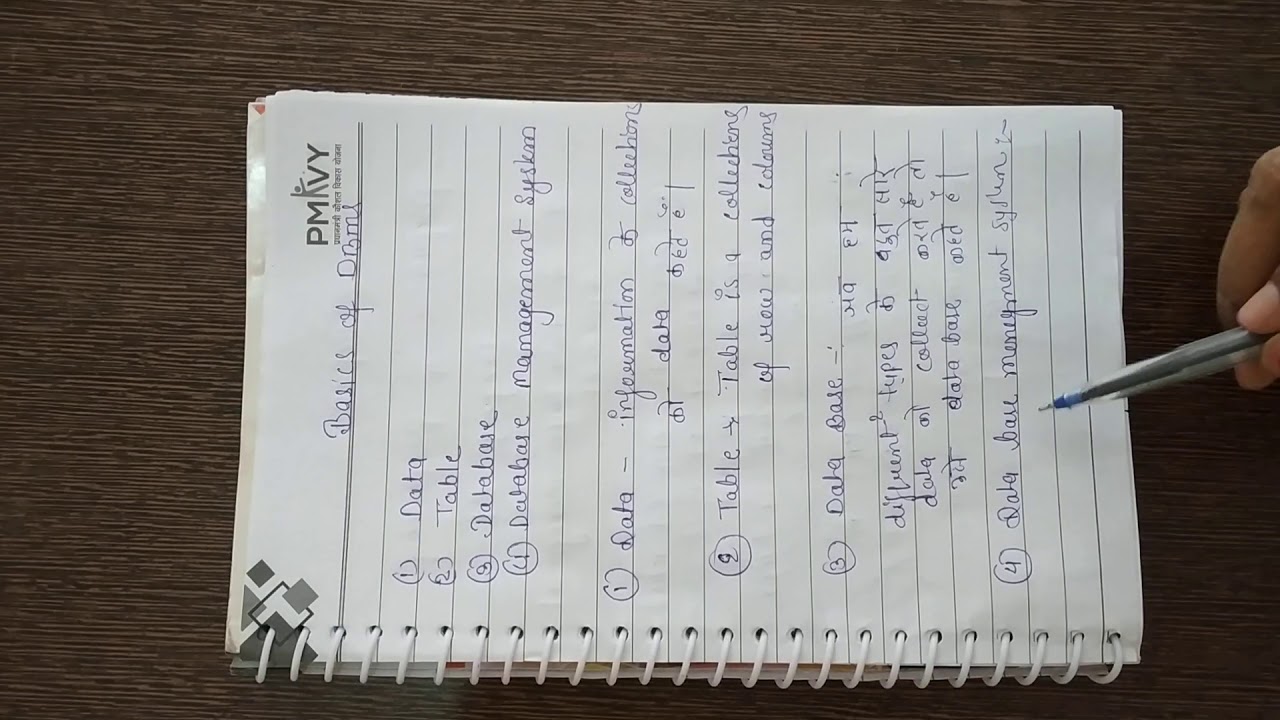 PMKVY
प्रधानमन्त्री कौशल विकास योजना
Basics of DBMS
(1) Data
(2) Table
(3) Database
(4) Database Management System
(1) Data - information के collections
को data कहते हैं।
(2) Table → Table is a collections
of row and coloums
(3) Data Base -: जब हम
diffrent types के बहुत सारे
data को collect करते हैं तो
उसे data base कहते हैं।
(4) Data base menegment system :-